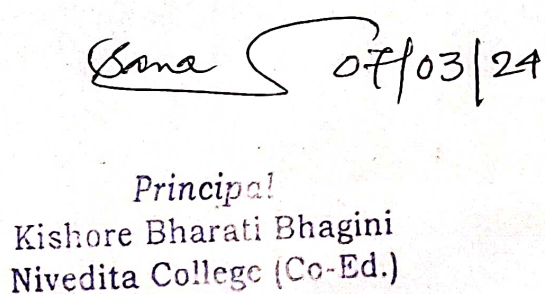 07/03/24
Principal
Kishore Bharati Bhagini
Nivedita College (Co-Ed.)